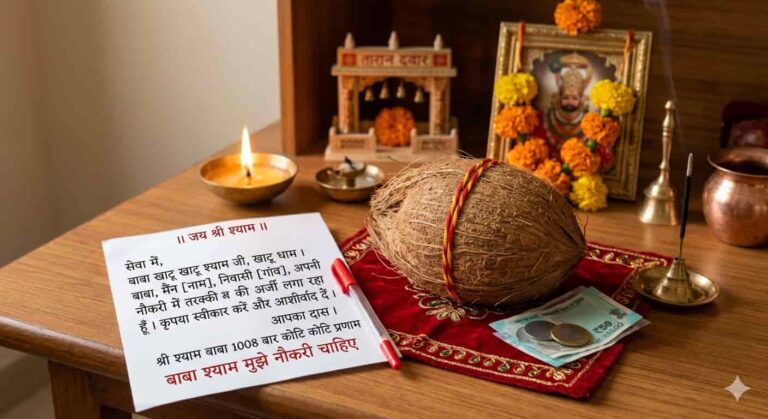 तारान दवार
॥ जय श्री श्याम ॥
सेवा में,
बाबा खाटू खाटू श्याम जी, खाटू धाम ।
बाबा, मैंन [नाम], निवासी [गांव], अपनी
नौकरी में तरक्की की अर्जी लगा रहा
हूँ । कृपया स्वीकार करें और आशीर्वाद दें ।
आपका दास ।
श्री श्याम बाबा 1008 बार कोटि कोटि प्रणाम
बाबा श्याम मुझे नौकरी चाहिए
₹50